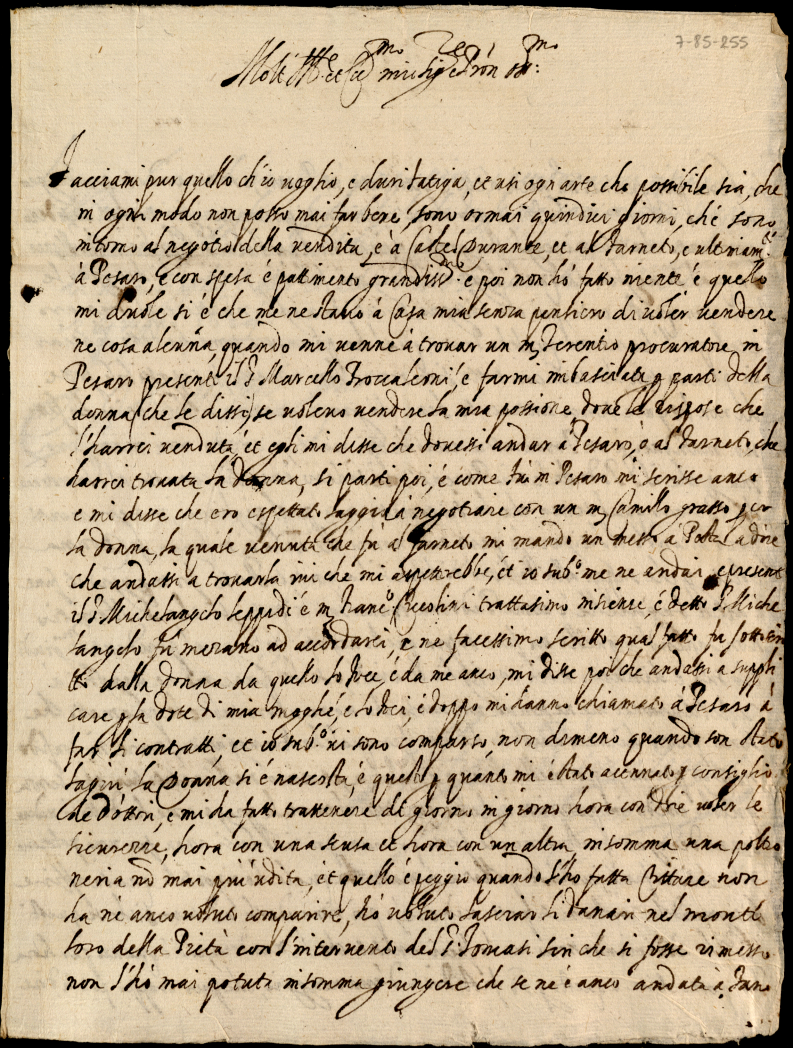 7-85-255
Molt Ill.re et Ecc.mo mio Sig.re e Pron oss.mo:
Facciami pur quello ch'io voglio, e duri fatiga, et usi ogn'arte che possibile sia, che
in ogni modo non posso mai far bene, sono ormai quindici giorni, ché sono
intorno al negotio della vendita, e à Castel Durante, et al Farneto, e ultimam.te
à Pesaro, e con spesa é pattimento grandiss.mo é poi non hó fatto niente é quello
mi duole si é che me ne stavo á Casa mia senza pensiero di voler vendere
ne cosa alcuna, quando mi venne à trovar un m. Terentio procuratore in
Pesaro presente il S. Marcello Troccaleoni, e farmi imbasciata p parti della
donna (che le dissi) se volevo vendere la mia possione dove le rispose che
l'harrei venduta, et egli mi disse che dovessi andar á Pesaro, ó al Farneto, che
harrei trovata la donna, si partì poi, é come fù in Pesaro mi scrisse anco
e mi disse che ero espettato laggiù á negotiare con un m. Camillo grasso per
la donna, la quale venuta che fu al farneto mi mandò un messo a Posta a dire
che andassi a trovarla ivi che mi aspettarebbe, et io sub.o me ne andai e present
il S. Michelangelo Leppidi é m. Franc.o Ciccolini trattasimo insieme, é detto S. Miche
langelo fu mezano ad accordarci, e ne facessimo scritto qual fatto fu sottoscri
tto dalla donna da quello lo fece, é da me anco, mi disse poi che andassi a suppli
care p la dote di mia moglié, e lo feci, é doppo mi hanno chiamato á Pesaro á
far li contratti et io sub.o vi sono comparso, non dimeno quando son stato
laggiù la Donna si é nascosta, é questo p quanto mi é stato acennato p consiglio
de dottri, e mi ha fatto trattenere di giorno in giorno hora con dire voler le
sicurezze, hora con una scusa et hora con un altra insomma una poltro
neria nò mai più udita, et quello é peggio quando l'ho fatta Cittare non
ha né anco voluto comparire, hó voluto lasciar li danari nel monte
loro della Pietà con l'intervento del S. Tomasi sin che si fosse rimesso
non l'hò mai potuta insomma giungere che se ne é anco andata à Fano